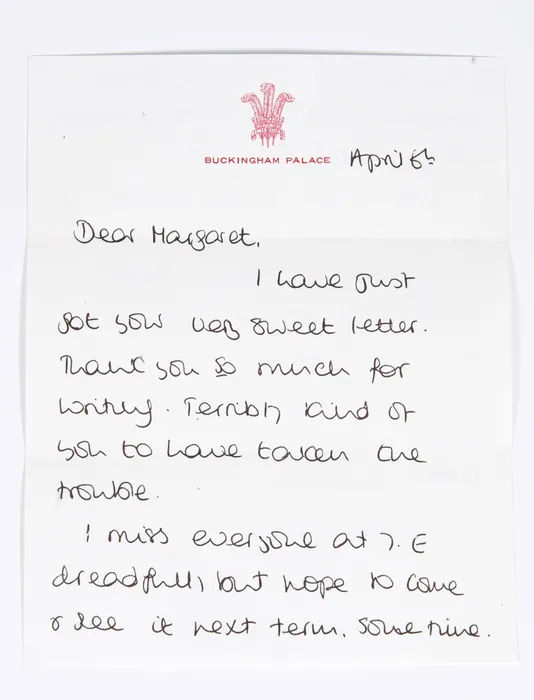 BUCKINGHAM PALACE
April 6th
Dear Margaret,
I have just
got your very sweet letter.
Thank you so much for
writing. Terribly kind of
you to have taken the
trouble.
I miss everyone at Y. E
dreadfully, but hope to come
& see it next term. Sometime.